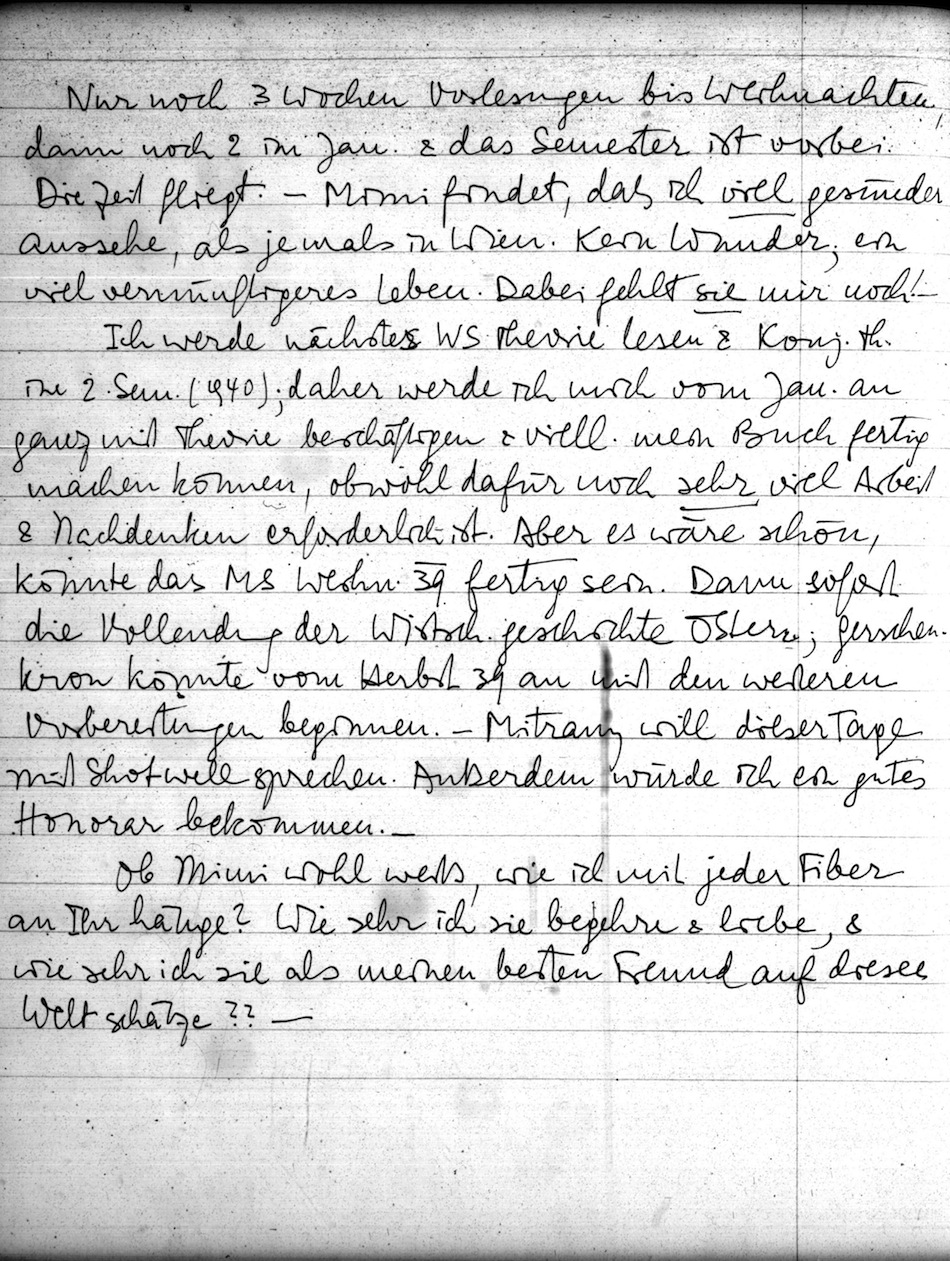 Nur noch 3 Wochen Vorlesungen bis Weihnachten,
dann noch 2 im Jan. & das Semester ist vorbei.
Die Zeit fliegt. – Mimi findet, daß ich viel gesünder
aussehe, als jemals in Wien. Kein Wunder; ein
viel vernünftigeres Leben. Dabei fehlt sie mir noch! –
Ich werde nächstes WS Theorie lesen & Konj. Th.
im 2. Sem. (1940); daher werde ich mich vom Jan. an
ganz mit Theorie beschäftigen & viell. mein Buch fertig
machen können, obwohl dafür noch sehr viel Arbeit
& Nachdenken erforderlich ist. Aber es wäre schön,
könnte das MS Weihn. 39 fertig sein. Dann sofort
die Vollendung der Wirtsch. geschichte Österr.; Gerschen-
kron könnte vom Herbst 39 an mit den weiteren
Vorbereitungen beginnen. – Mitrany will dieser Tage
mit Shotwell sprechen. Außerdem würde ich ein gutes
Honorar bekommen. –
Ob Mimi wohl weiß, wie ich mit jeder Fiber
an Ihr hänge? Wie sehr ich sie begehre & liebe, &
wie sehr ich sie als meinen besten Freund auf dieser
Welt schätze?? —